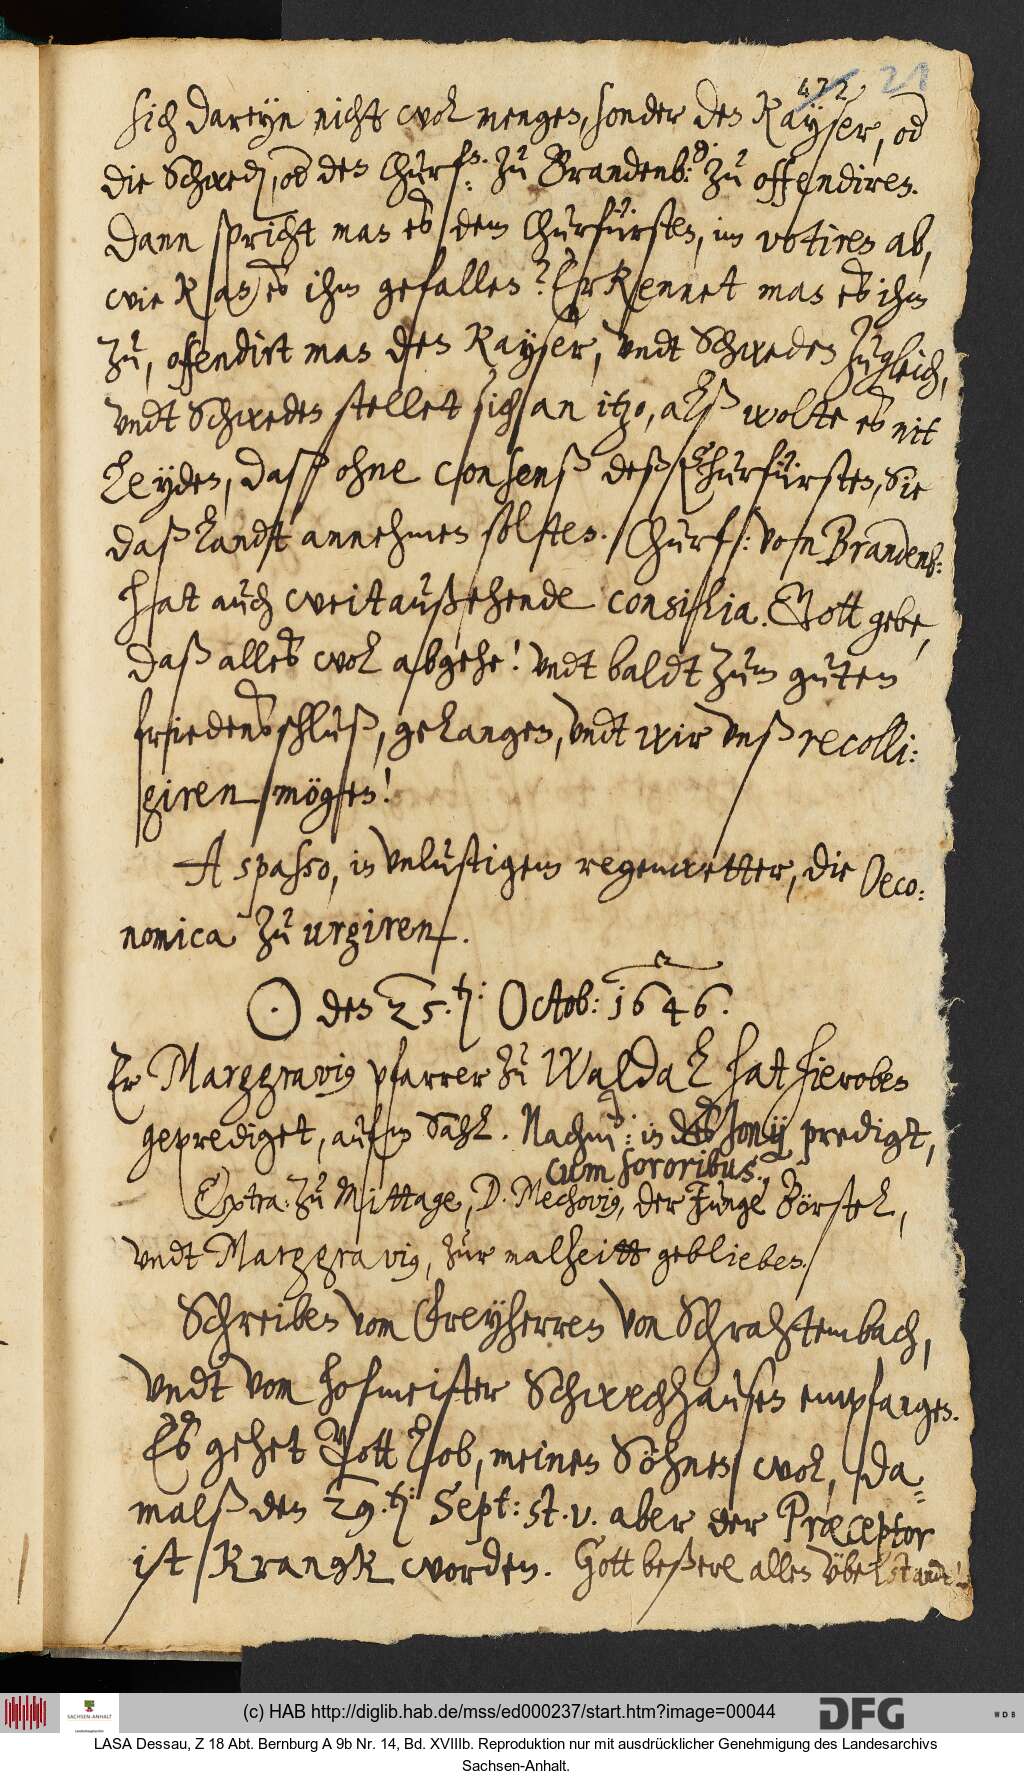 422 21
sich dareyn nicht wol mengen, sonder den Kayser, od
die Schwed, od den Churfs. zu Brandenb: zu offendiren.
Dann spricht man es dem Churfürsten, im votiren ab,
wie kan es ihm gefallen? Erkennet man es ihm
zu, offendirt man den Kayser, vndt Schweden zugleich,
vndt Schweden stellet sich an itzo, alß wolte es nit
leyden, daß ohne consenß deß Churfürsten, Sie
daß landt annehmen solten. Churfs: von Brandenb:
hat auch weitaußehende consilia. Gott gebe,
daß alles wol abgehe! vndt baldt zum guten
friedensschluß, gelangen, vndt wir vnß recolli:
giren mögen!
A spasso, in vnlustigem regenwetter, die Oeco:
nomica zu urgiren.
☉ den 25.ten: Octob: 1646.
Er Marggravius pfarrer zu Waldal hat hieroben
geprediget, aufm Sahl. Nachm: in des Jonij predigt,
cum sororibus.
Extra zu Mittage, D. Mechovius, der Junge Börstel,
vndt Marggravius, zur malzeitt geblieben.
Schreiben vom Freyherren von Schrahtembach,
vndt vom hofmeister Schwechhausen empfangen.
Es gehet Gott lob, meinen Söhnen wol, da=
malß den 29.ten: Sept: st. v. aber der Præceptor
ist krangk worden. Gott beßere allen vbelstandt!
(c) HAB http://diglib.hab.de/mss/ed000237/start.htm?image=00044
SACHSEN-ANHALT
DFG
WDB
LASA Dessau, Z 18 Abt. Bernburg A 9b Nr. 14, Bd. XVIIIb. Reproduktion nur mit ausdrücklicher Genehmigung des Landesarchivs
Sachsen-Anhalt.